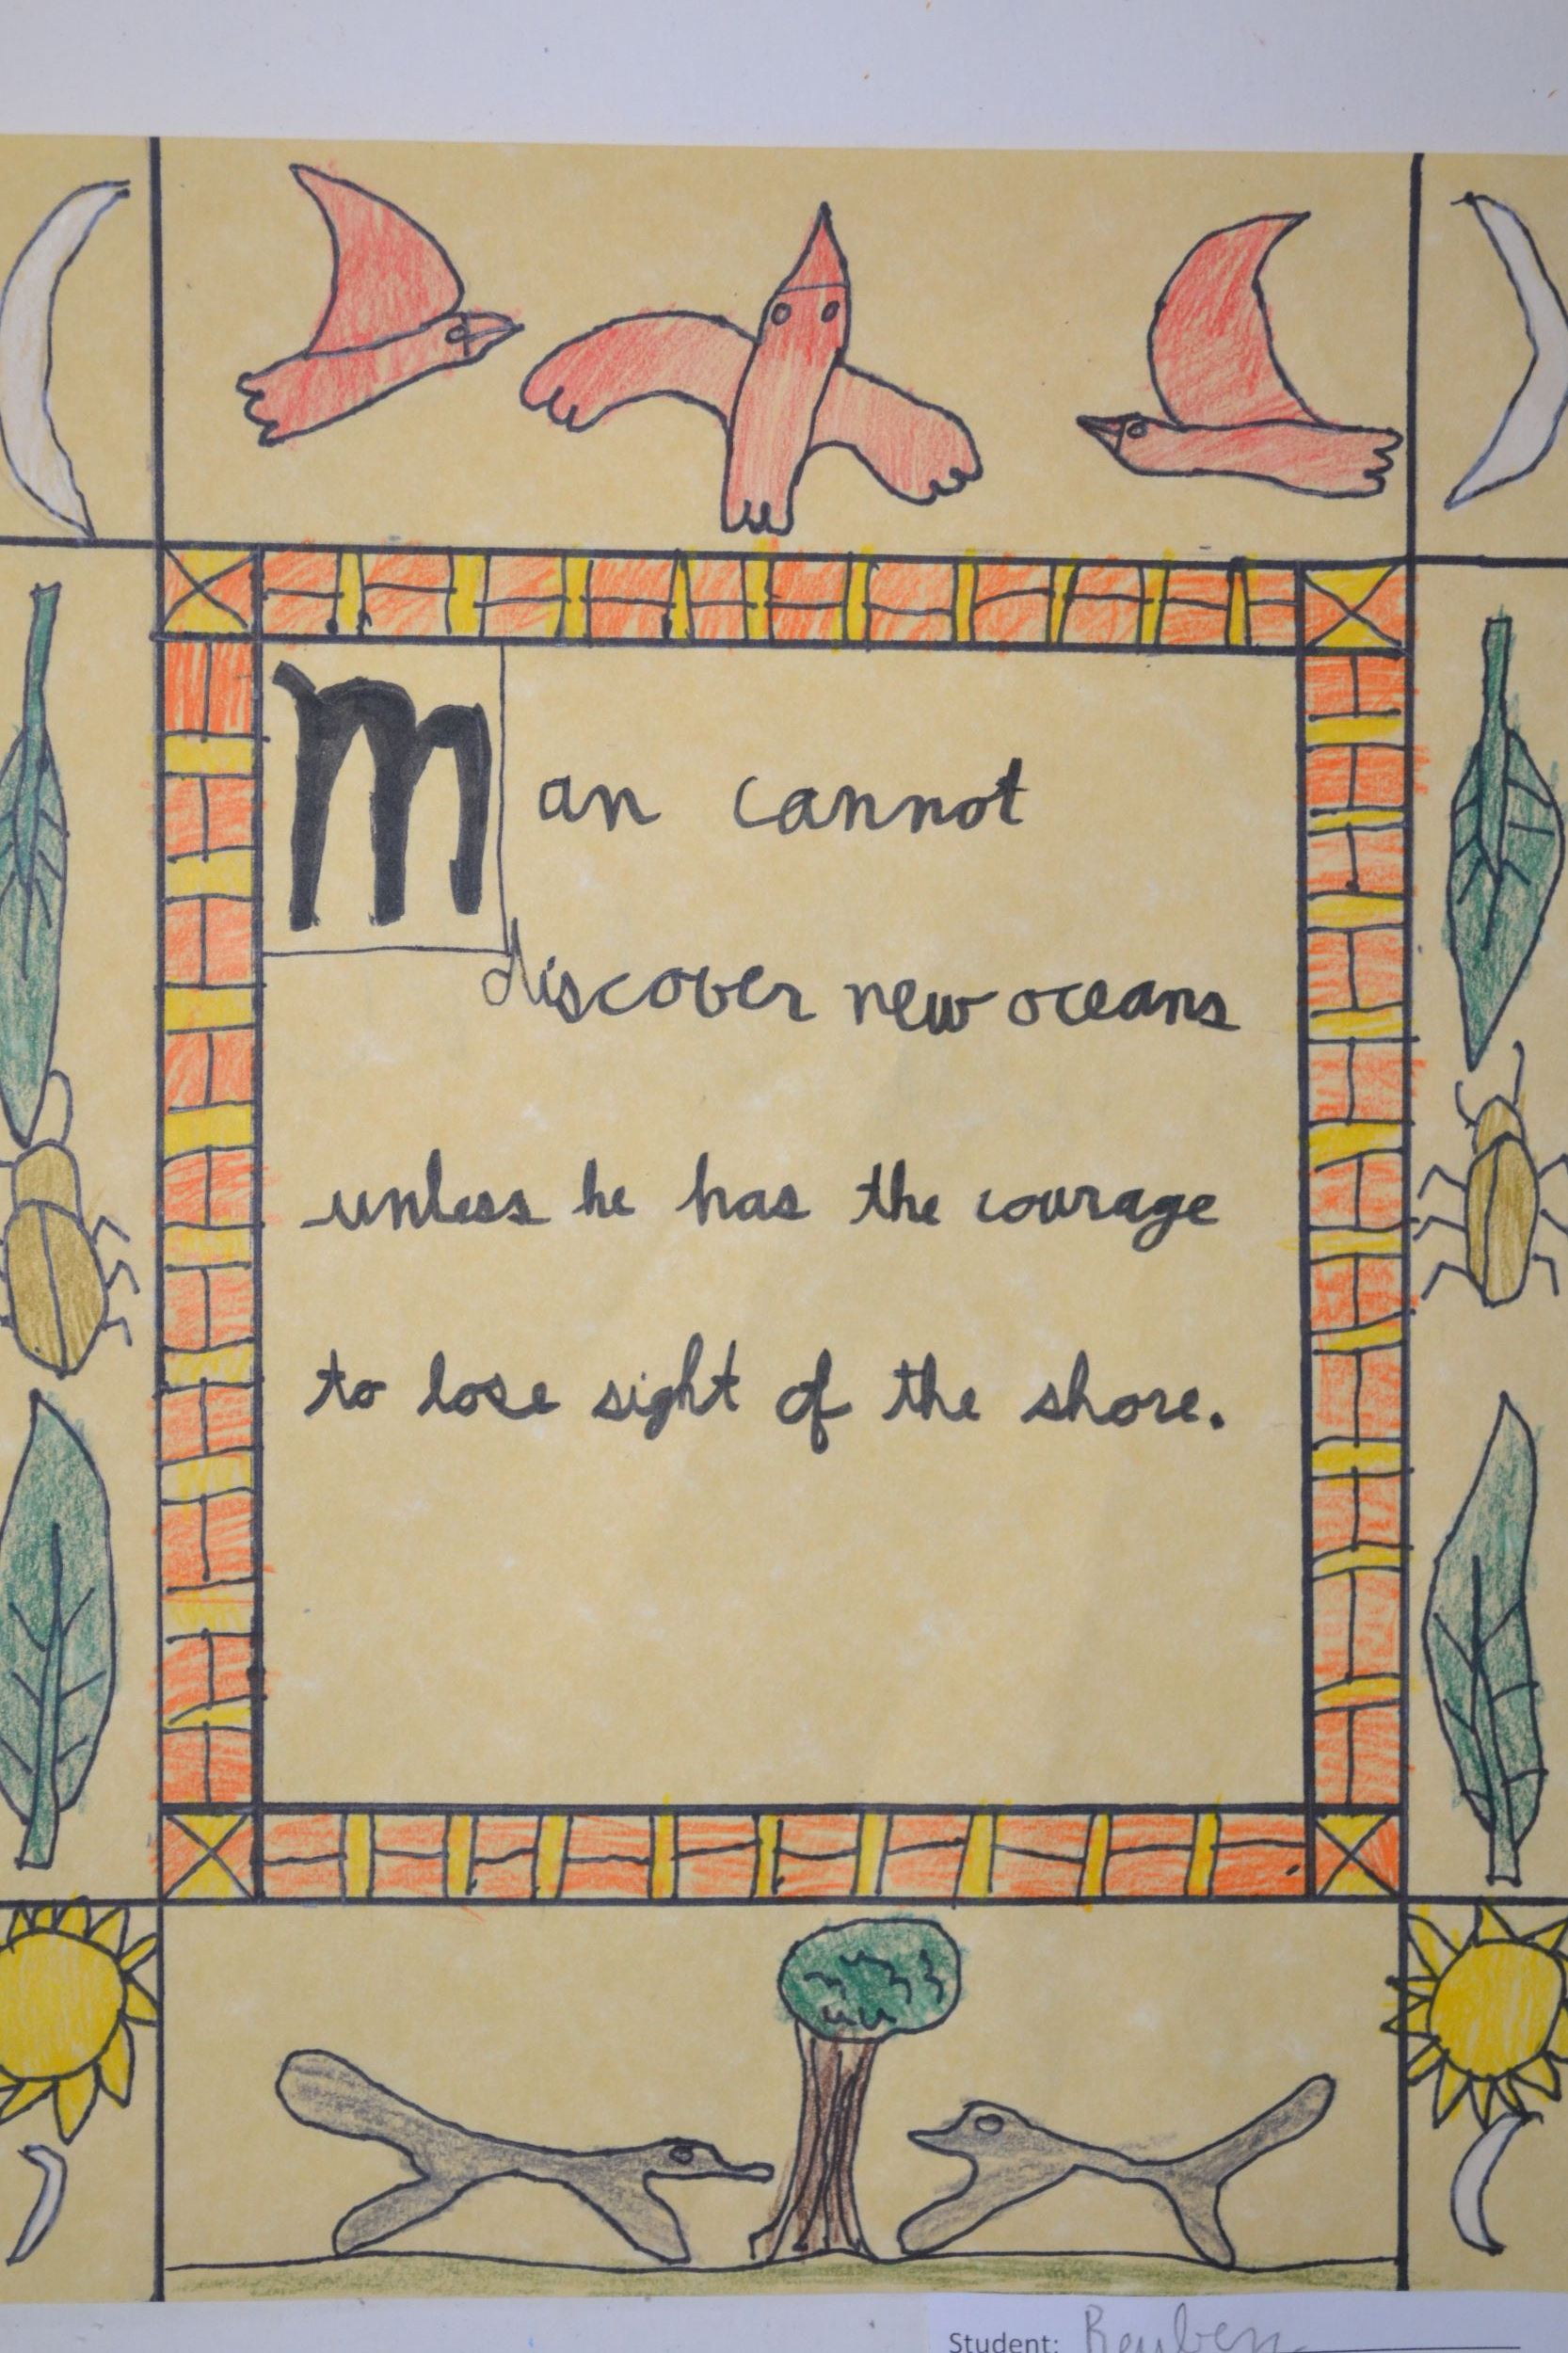 Man cannot
discover new oceans
unless he has the courage
to lose sight of the shore.
Student: Reuben